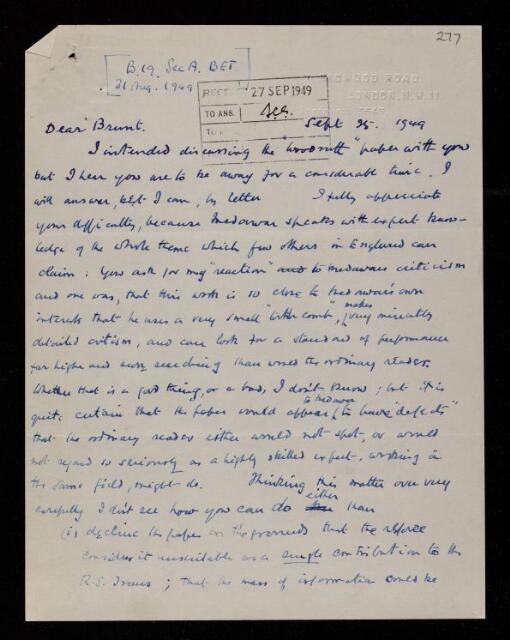 277
B.19. Sec A. BET
21 Aug. 1949
27 SEP 1949
TO ANS.
WOOD ROAD,
LONDON, N.W.11
Dear Brunt.
Sept 25. 1949
I intended discussing the " paper with you
but I hear you are to be away for a considerable time. I
will answer, best I can, by letter I fully appreciate
your difficulty, because Medawar speaks with expert know-
ledge of the whole theme which few others in England can
claim. You ask for my "reaction" to Medawar's criticism
and one was, that this work is so close to Medawar's own
interests that he uses a very small "tooth comb", makes very minutely
detailed criticism, and can look for a standard of performance
far higher and more searching than would the ordinary reader.
Whether that is a good thing, or a bad, I don't know; but it is
quite certain that the paper would appear to Medawar to have "defects"
that the ordinary reader either would not spot, or would
not regard so seriously as a highly skilled expert, working in
the same field, might do. Thinking this matter over very
carefully I don't see how you can do either than
(1) decline the paper on the grounds that the referee
considers it unsuitable as a single contribution to the
R.S. Trans; that the mass of information could be